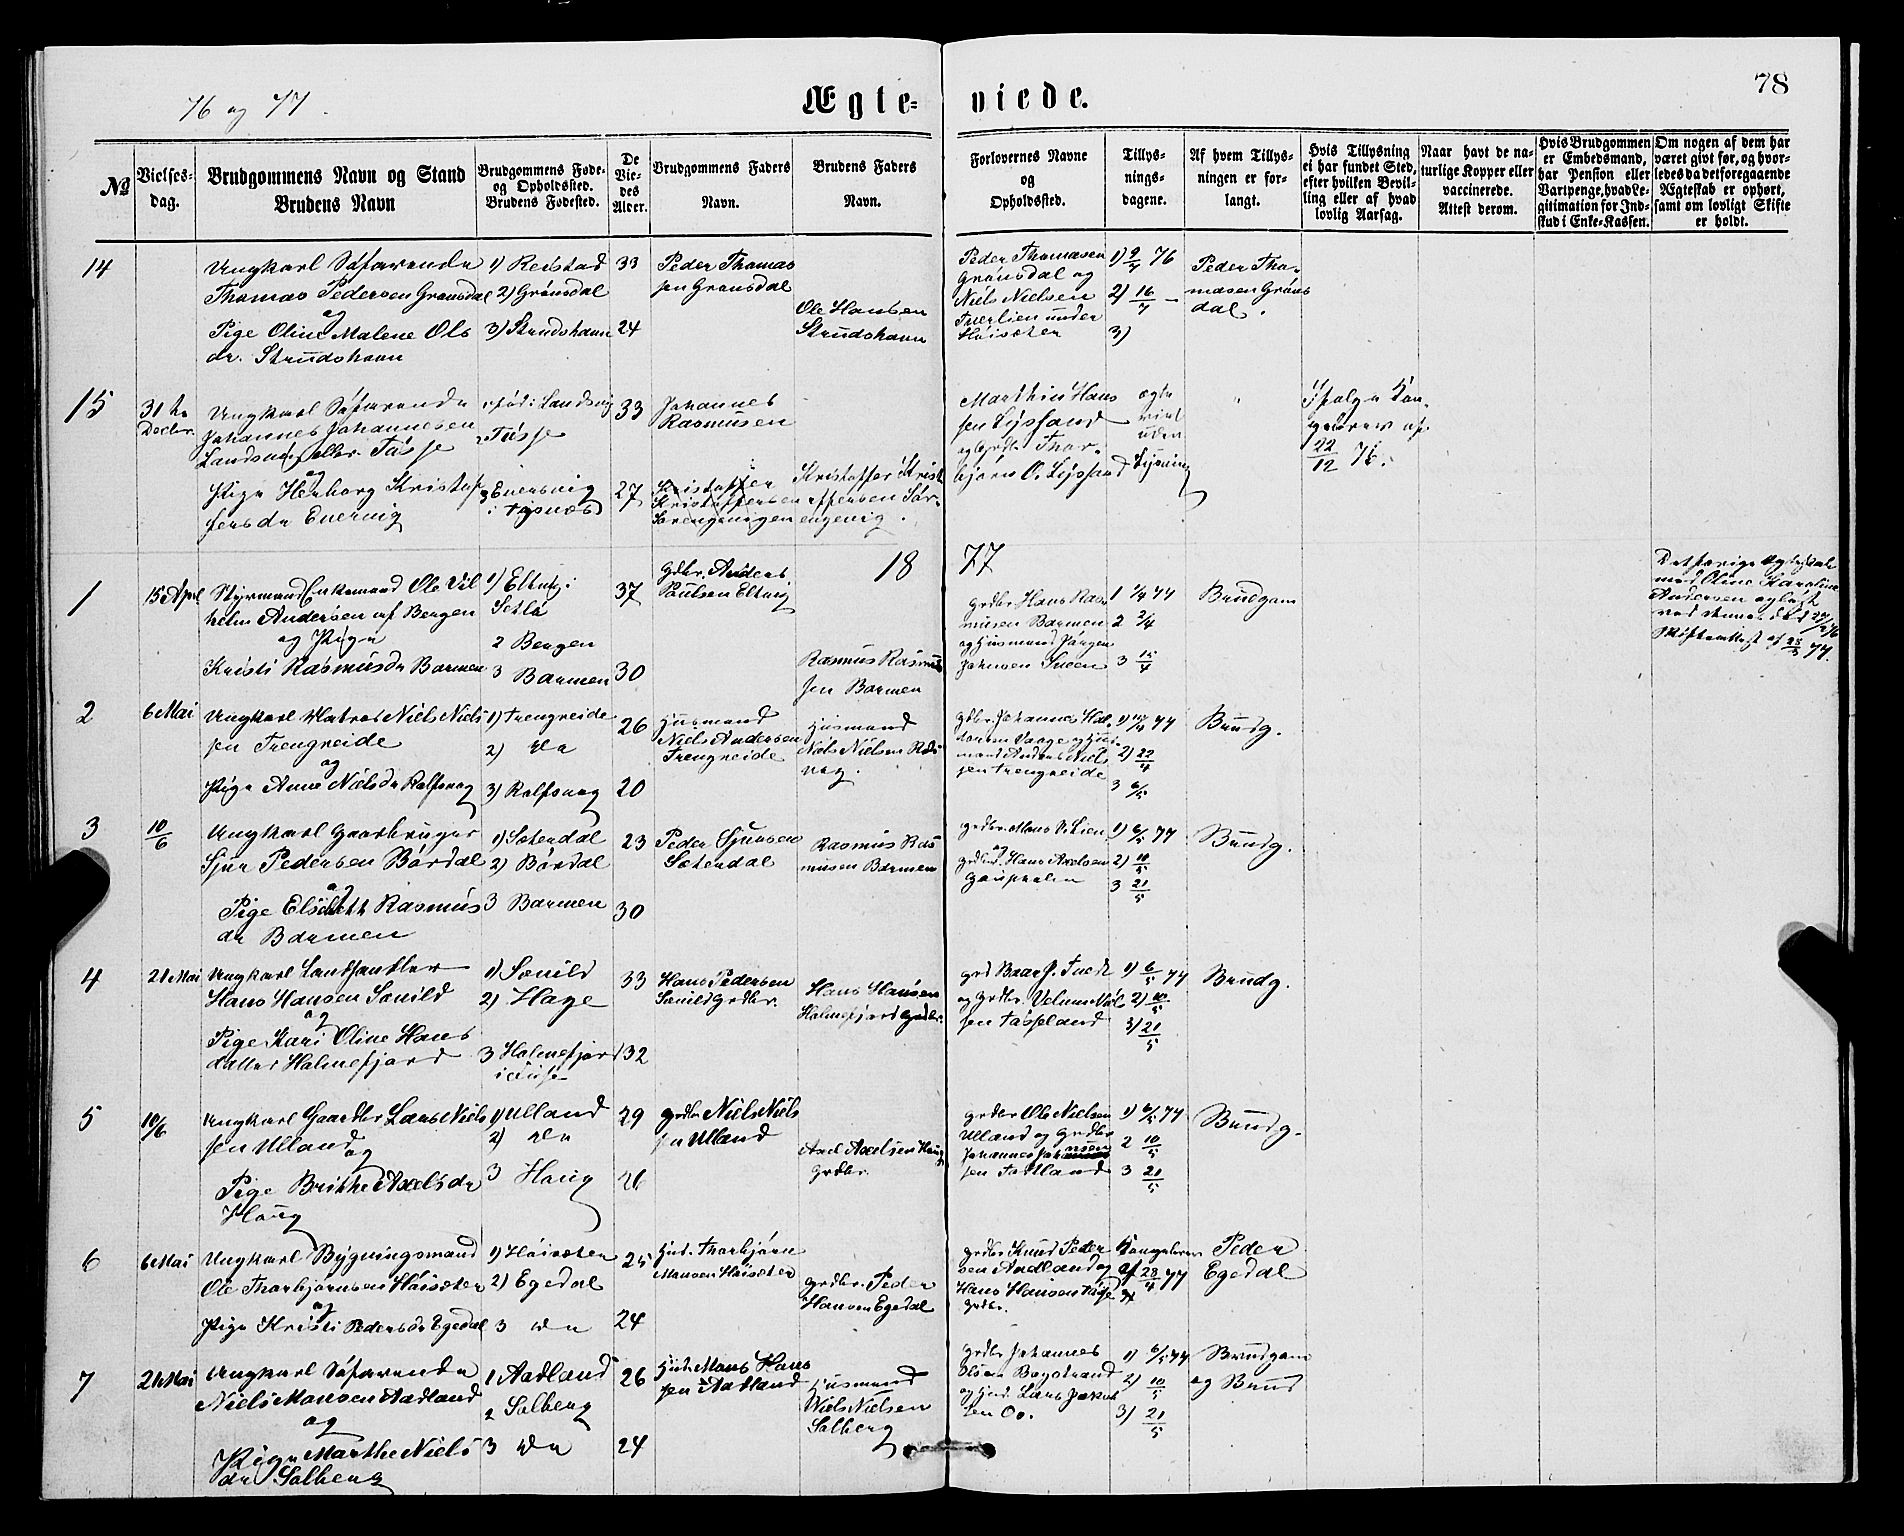 76 og 77.
Ægte-viede.
78
No
Vielses-
dag.
Brudgommens Navn og Stand
Brudens Navn
Brudgommens Føde-
og Opholdssted.
Brudens Fødested.
De
Vie-
des
Alder.
Brudgommens Faders
Navn.
Brudens Faders
Navn.
Forlovernes Navne
og
Opholdssted.
Tillys-
nings-
dagene.
Af hvem Tillys-
ningen er for-
langt.
Hvis Tillysning
ei har fundet Sted,
efter hvilken Bevil-
ling eller af hvad
lovlig Aarsag.
Naar havt de na-
turlige Kopper eller
vaccinerede.
Attest derom.
Hvis Brudgommen
er Embedsmand,
har Pension eller
Vartpenge, hvad Le-
gitimation for Ind-
skud i Enke-Kassen.
Om nogen af dem har
været givt før, og hvor-
ledes da det foregaaende
Ægteskab er ophørt,
samt om lovligt Skifte
er holdt.
14
Ungkarl Søfarende
Thomas Pedersen Grønsdal
og
Pige Oline Malene Ols
dr. Strudshavn
1) Reistad
2) Grønsdal
3) Strudshavn
33
24
Peder Thomas
sen Grønsdal
Ole Hansen
Strudshavn
Peder Thomasen
Grønsdal og
Niels Nielsen
Tverlien under
Høisæter
1) 9/7 76
2) 16/7 -
3)
Peder Tho-
masen Grøns
dal.
15
31te
Decbr.
Ungkarl Søfarende
Johannes Johannesen
Landsvig eller Tøsse
og
Pige Herborg Kristof
fersdr Enervig
1 fød i Landsvig
2 Tøsse
3 Enersvig
i Tysnæs
33
27
Johannes
Rasmusen
Kristoffer
Kristoffersen
Kristoffer Krist
offersen Sør-
engevig.
Marthin Hans
sen Lysfand
og Grdbr. Thor-
bjørn O. Lysfand
ægte
viet
uden
Lysning
Ifølge Kon-
gebrev af
22/12 76.
18 77
1
15 April
Styrmand Enkemand Ole Vil
helm Andersen af Bergen
og Pige
Kristi Rasmusdr Barmen
1) Eltvig i
Sellø
2 Bergen
3 Barmen
37
30
Gdbr. Anders
Paulsen Eltvig
Rasmus Rasmus
sen Barmen
grdbr Hans Ras
musen Barmen
og Husmand Jørgen
Johnsen
1 1/4 77
2 2/4
3 15/4
Brudgom
Det forrige Ægteskab
med Oline Karoline
Andersen opløst
ved dennes død
Skifteattest af 77.
2
6 Mai
Ungkarl Matros Niels Niels
sen Trengreide
og
Pige Anne Nielsdr Rolfsvag
1) Trengreide
2) do
3) Rolfsvag
26
20
Husmand
Niels Andersen
Trengreide
Husmand
Niels Nielsen Rols
vag.
Gdbr. Johannes Hal-
dorsen Vaage og Hus-
mand Anders Niels
sen Trengreide
1) 77
2) 22/4
3 6/5
Brudg.
3
10/6
Ungkarl Gaardbruger
Sjur Pedersen Børdal
og
Pige Elsebeth Rasmus
dr Barmen
1) Sætendal
2) Børdal
3 Barmen
23
30
Peder Sjursen
Sætendal
Rasmus Ras
musen Barmen
grdbr. Mons Lien
og
grdbr. Hans Axelsen
Gaupholm
1) 6/5 77
2) 10/5
3 21/5
Brudg.
4
21 Mai
Ungkarl Landhandler
Hans Hansen Sævild
og
Pige Kari Oline Hans
datter Holmefjord
1) Sævild
2) Hage
3 Holmefjord
i Fuse
33
32
Hans Pedersen
Sævild Grdbr.
Hans Hansen
Holmefjord Grdbr.
og Grdbr.
1) 6/5 77
2) 10/5
3) 21/5
Brudg.
5
10/6
Ungkarl Gaardbr Lars Niels
sen Ulland
og
Pige Brithe Axelsdr
Haug
1) Ulland
2) do
3 Haug
29
26
grdbr Niels Niels
sen Ulland
Axel Axelsen Haug
Grdbr.
grdbr Ole Nielsen
Ulland og Grdbr
1) 6/5 77
2 10/5
3 21/5
Brudg.
6
6 Mai
Ungkarl Bygningsmand
Ole Thorbjørnsen Høisæter
og
Pige Kristi Pedersdr Egedal
1) Høisæter
2) Egedal
3 do
25
24
Husm. Thorbjørn
Monsen Høisæter
grdbr. Peder
Hansen Egedal
grdbr Knud Peder
sen Aadland og
Hans Hansen
Grdbr.
Kongebrev
af 28/4 77
Peder
Egedal
7
21 Mai
Ungkarl Søfarende
Niels Monsen Aadland
og
Pige Marthe Niels
dr Solberg
1 Aadland
2 Solberg
3 do
26
24
Husm. Mons Hans
sen Aadland
Husmand
Niels Nielsen
Solberg
grdbr Johannes
Olsen Bogstrand
og Husm. Lars Jakob
sen Os.
1) 6/5 77
2) 10/5
3) 21/5
Brudgom
og Brud